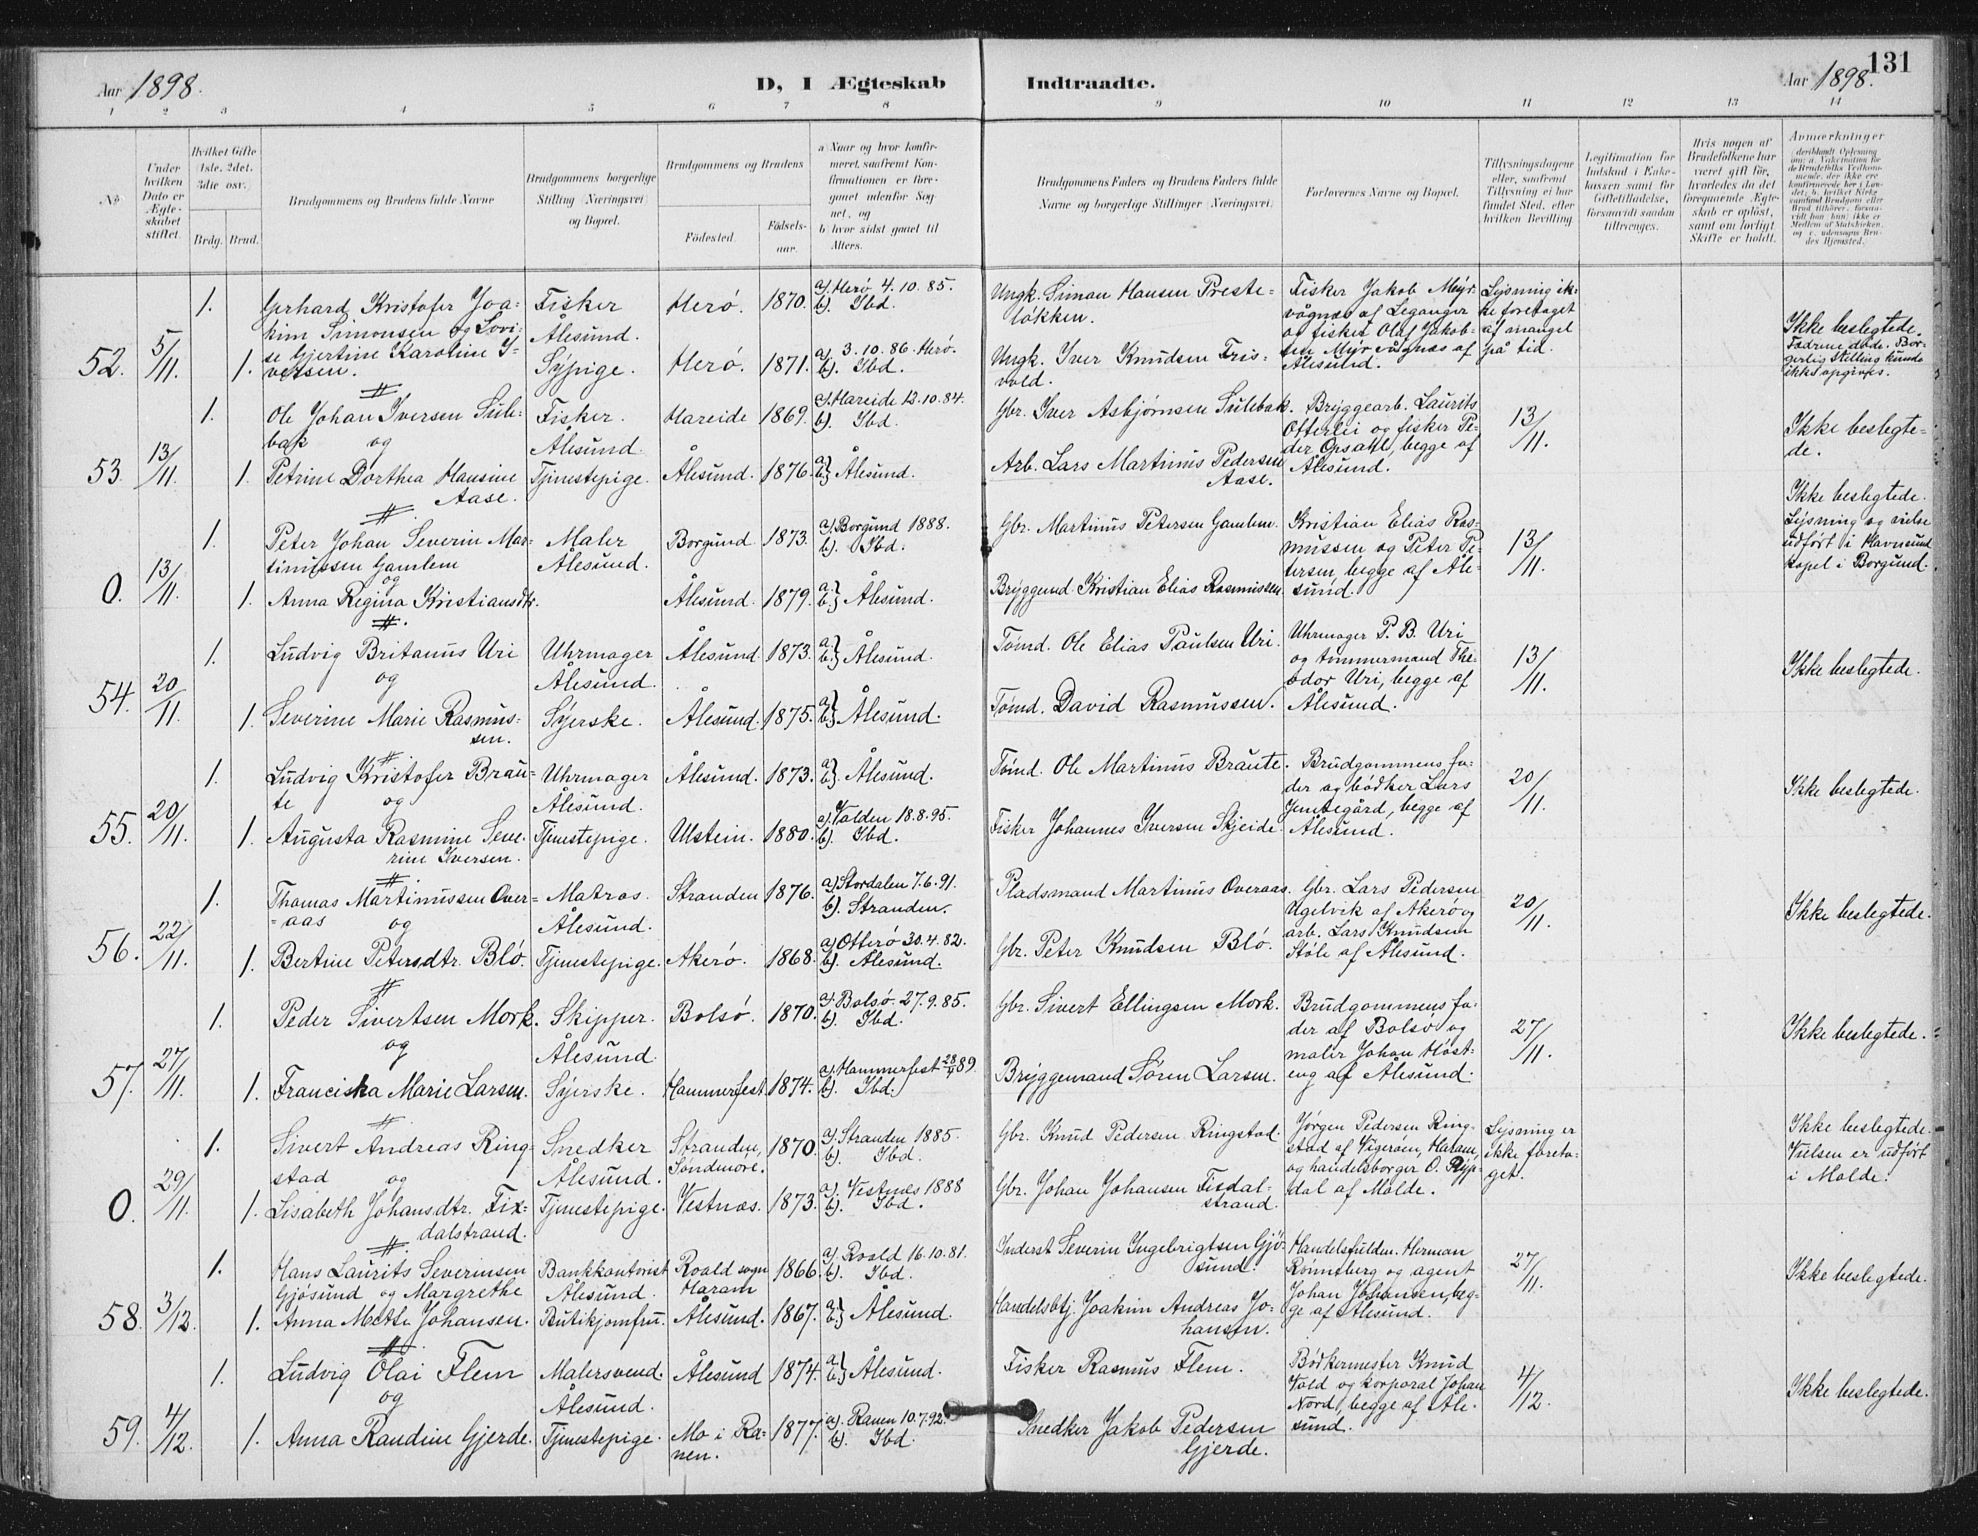 131
Aar 1898.
D, I Ægteskab
Indtraadte.
Aar 1898.
1 2 3 4 5 6 7 8 9 10 11 12 13 14
No.
Under
hvilken
Dato er
Ægte-
skabet
stiftet.
Hvilket Gifte
(1ste, 2det,
3die osv.)
Brdg. Brud.
Brudgommens og Brudens fulde Navne
Brudgommens borgerlige
Stilling (Næringsvei)
og Bopæl.
Brudgommens og Brudens
Fødested.
Fødsels-
aar.
a Naar og hvor konfir-
meret, saafremt Kon-
firmationen er fore-
gaaet udenfor Sog-
net, og
b hvor sidst gaaet til
Alters.
Brudgommens Faders og Brudens Faders fulde
Navne og borgerlige Stillinger (Næringsvei)
Forlovernes Navne og Bopæl.
Tillysningsdagene
eller, saafremt
Tillysning ei har
fundet Sted, efter
hvilken Bevilling
Legitimation for
Indskud i Enke-
kassen samt for
Giftetilladelse,
forsaavidt saadan
tiltrænges.
Hvis nogen af
Brudefolkene har
været gift før,
hvorledes da det
foregaaende Ægte-
skab er opløst,
samt om lovligt
Skifte er holdt.
Anmærkninger
52. 5/11. 1. 1.
Gerhard Kristofer Joa-
kim Simonsen og Lovi-
se Gjertine Karoline I-
versen.
Fisker
Ålesund.
Sypige.
Herö. 1870.
Herö. 1871.
a). Herö 4.10.85.
b). Ibd.
a). 3.10.86. Herö.
b). Ibd.
Ungk. Simon Hansen Preste-
løkken.
Ungk. Iver Knudsen Fris-
vold.
Fisker Jakob Myr-
vågnæs af Leganger
og fisker Olaf Jakob-
sen Myrvågnæs af
Ålesund.
Lysning ik-
ke foretaget
af mangel
på tid.
Ikke beslegtede.
Fædrene døde. Bor-
gerlig stilling kunde
ikke opgives.
53. 13/11. 1. 1.
Ole Johan Iversen Sule-
bak og
Petrine Dorthea Hansine
Aase.
Fisker.
Ålesund
Tjenestepige.
Hareide 1869.
Ålesund. 1876.
a). Hareide 12.10.84.
b). Ibd.
a) b) Ålesund.
Gbr. Iver Asbjørnsen Sulebak.
Arb. Lars Martinus Pedersen
Aase.
Bryggearb. Laurits
Otterlei og fisker Pe-
der Opsahl, begge af
Ålesund.
13/11.
Ikke beslegte-
de.
0. 13/11. 1. 1.
Peter Johan Severin Mar-
tinussen Gamlem
og
Anna Regina Kristiansdtr.
Maler
Ålesund.
Borgund 1873.
Ålesund. 1879.
a). Borgund 1888.
b). Ibd.
a. b.} Ålesund.
Gbr. Martinus Petersen Gamlem.
Bryggemd. Kristian Elias Rasmussen.
Kristian Elias Ras-
mussen og Peter Pe-
tersen, begge af Åle-
sund.
13/11.
Ikke beslegtede.
Lysning og vielse
udført i Havnsund
kapel i Borgund.
54. 20/11. 1. 1.
Ludvig Britanus Uri
og
Severine Marie Rasmus-
sen.
Uhrmager
Ålesund.
Syerske.
Ålesund 1873.
Ålesund. 1875.
a) b.} Ålesund.
a) b.} Ålesund.
Tømd. Ole Elias Paulsen Uri.
Tømd. David Rasmussen.
Uhrmager P. B. Uri
og tømmermand The-
odor Uri, begge af
Ålesund.
13/11.
Ikke beslegtede.
55. 20/11. 1. 1.
Ludvig Kristofer Brau-
te og
Augusta Rasmine Seve-
rine Iversen.
Uhrmager
Ålesund.
Tjenestepige.
Ålesund. 1873.
Ulstein. 1880.
a) b.} Ålesund.
a). Volden 18.8.95.
b). Ibd.
Tømd. Ole Martinus Braute.
Fisker Johannes Iversen Skjeide.
Brudgommens fa-
der og bødker Lars
Jemtegård, begge af
Ålesund.
20/11.
Ikke beslegtede.
56. 22/11. 1. 1.
Thomas Martinussen Over-
aas og
Bertine Petersdtr. Blö.
Matros.
Ålesund.
Tjenestepige.
Stranden 1876.
Akerö. 1868.
a). Stordalen 7.6.91.
b). Stranden.
a). Otterö 30.4.82.
b). Ålesund.
Pladsmand Martinus Overaas.
Gbr. Peter Knudsen Blö.
Gbr. Lars Pedersen
Ugelvik af Akerö og
arb. Lars Knudsen
Støle af Ålesund.
20/11.
Ikke beslegtede.
57. 27/11. 1. 1.
Peder Sivertsen Mork.
og
Franciska Marie Larsen.
Skipper.
Ålesund.
Syerske.
Bolsö. 1870.
Hammerfest. 1874.
a). Bolsö. 27.9.85.
b). Ibd.
a). Hammerfest 89
b). Ibd.
Gbr. Sivert Ellingsen Mork.
Bryggemand Søren Larsen.
Brudgommens fa-
der af Bolsö og
maler Johan Høst-
eng af Ålesund.
27/11.
Ikke beslegtede.
0. 29/11. 1. 1.
Sivert Andreas Ring-
stad og
Lisabeth Johansdtr. Fix-
dalstrand.
Snedker
Ålesund.
Tjenestepige.
Stranden,
Søndmøre. 1870.
Vestnæs. 1873.
a). Stranden 1885.
b). Ibd.
a). Vestnæs 1888
b). Ibd.
Gbr. Knud Pedersen Ringstad.
Gbr. Johan Johansen Fisdal-
strand.
Jørgen Pedersen Ring-
stad af Vigerøen, Haram,
og handelsborger O. Ryp-
dal af Molde.
Lysning er
ikke foreta-
get.
Ikke beslegtede.
Vielsen er udført
i Molde.
58. 3/12. 1. 1.
Hans Laurits Severinsen
Gjøsund og Margrethe
Anna Mette Johansen.
Bankkontorist
Ålesund.
Butikjomfru.
Roald sogn
Haram 1866.
Ålesund. 1867.
a). Roald 16.10.81.
b). Ibd.
a) b} Ålesund.
Inderst Severin Ingebrigtsen Gjø-
sund.
Handelsbtj. Joakim Andreas Jo-
hansen.
Handelsfuldm. Herman
Rønneberg og agent
Johan Johansen, beg-
ge af Ålesund.
27/11.
Ikke beslegtede.
59. 4/12. 1. 1.
Ludvig Olai Flem
og
Anna Randine Gjerde.
Malersvend.
Ålesund.
Tjenestepige.
Ålesund 1874.
Mo i Ra-
nen. 1877.
a) b.} Ålesund.
a). Ranen 10.7.92.
b). Ibd.
Fisker Rasmus Flem.
Snedker Jakob Pedersen
Gjerde.
Bødkermester Knud
Vold og korporal Johan
Nord, begge af Åle-
sund.
4/12.
Ikke beslegtede.